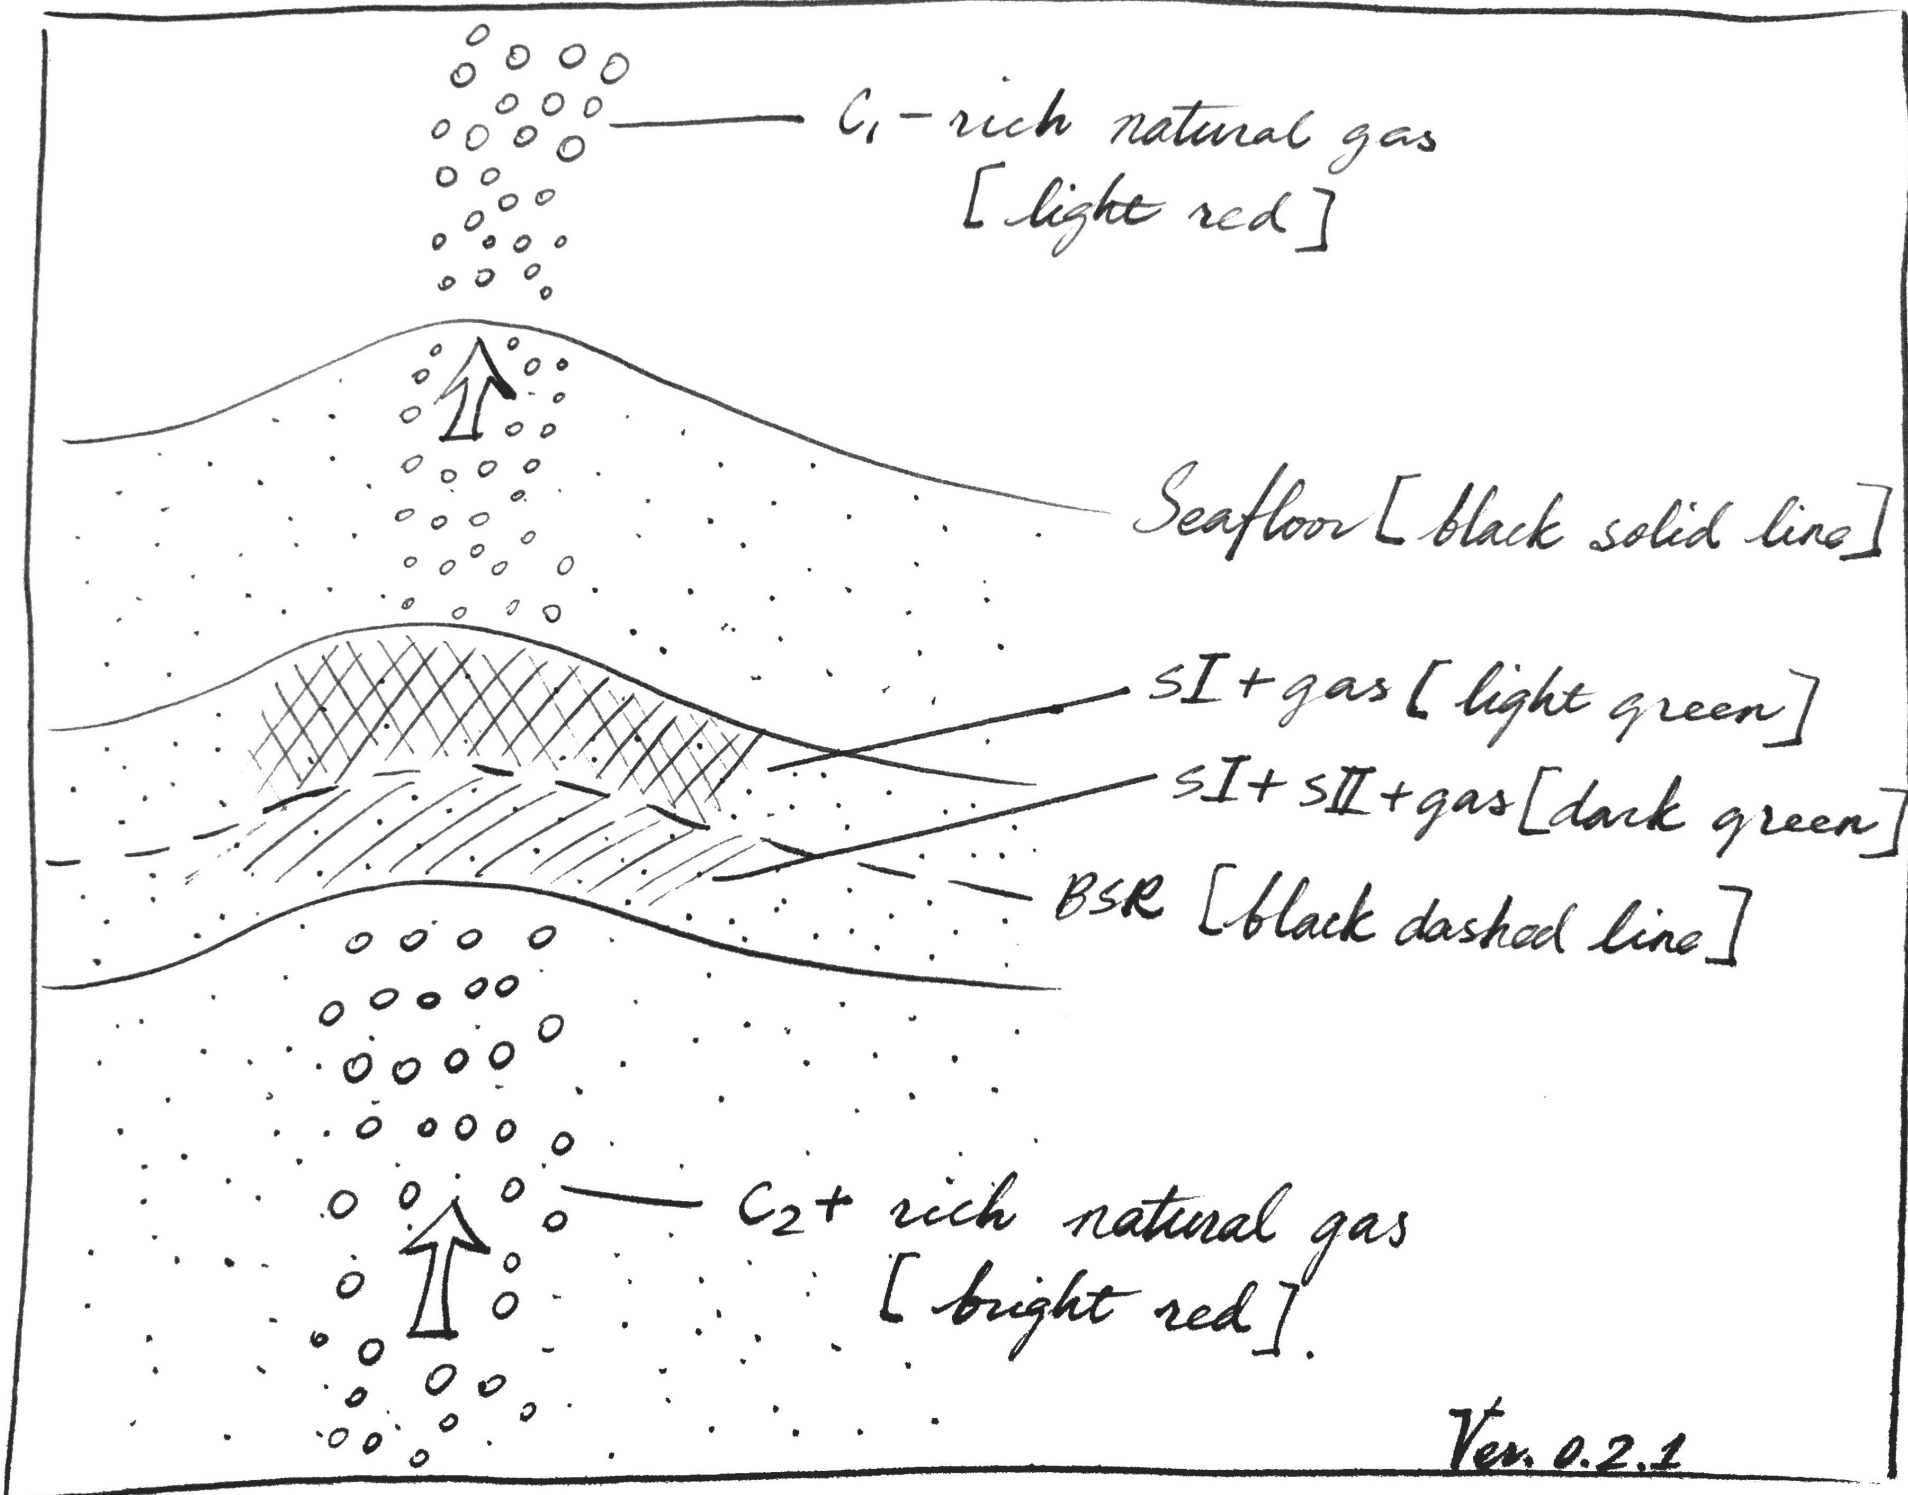 C₁-rich natural gas
[light red]
Seafloor [black solid line]
sI+gas [light green]
sI+sII+gas [dark green]
BSR [black dashed line]
C₂+ rich natural gas
[bright red].
Ver. 0.2.1